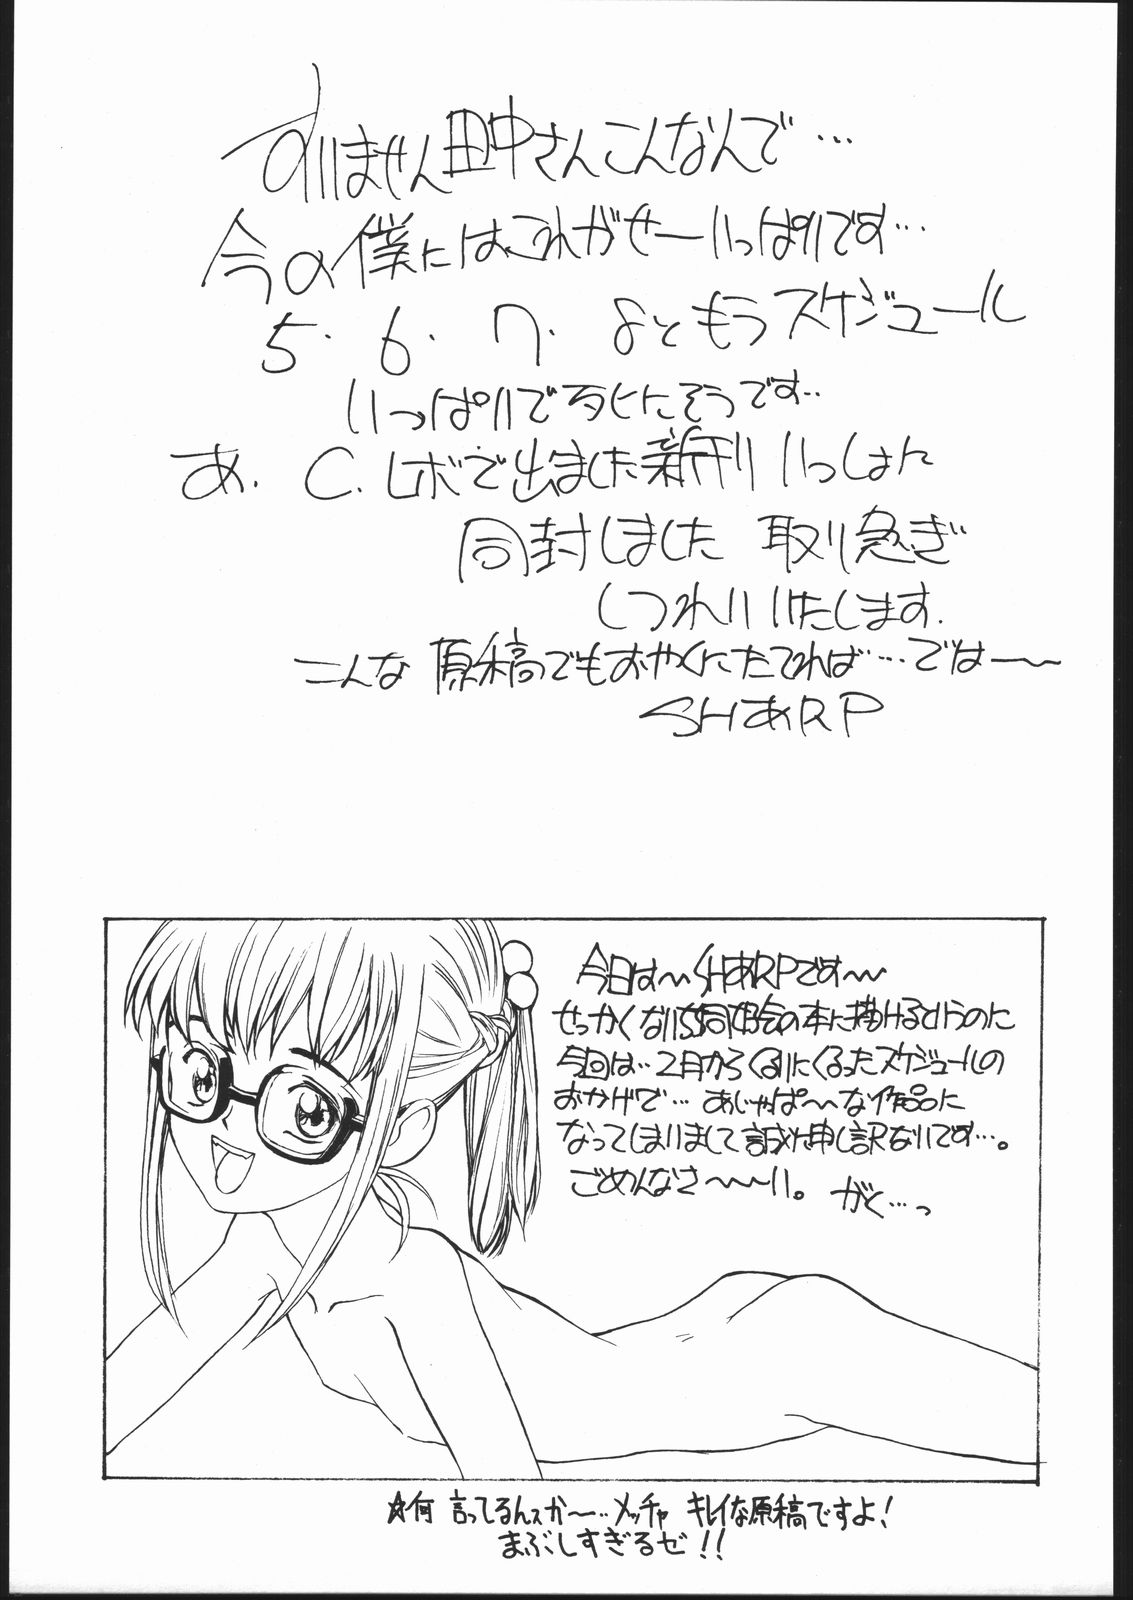 すいません田中さんこんなんで…
今の僕にはこれがせーいっぱいです…
5.6.7.8ともうスケジュール
いっぱいで死にそうです..
あ.C.レボで出ました新刊いっしょに
同封しました 取り急ぎ
しつれいいたします.
こんな原稿でもおやくにたてれば…では〜
SHあRP
今日は〜SHあRPです〜
せっかくないSS同好会の本に描けるというのに
今回は…2月からくるいにくるったスケジュールの
おかげで…あじゃぱ〜な作品に
なってしまいまして誠に申し訳ないです…。
ごめんなさ〜〜い。 がと…っ
☆何言ってるんスか〜…メッチャ キレイな原稿ですよ!
まぶしすぎるゼ!!